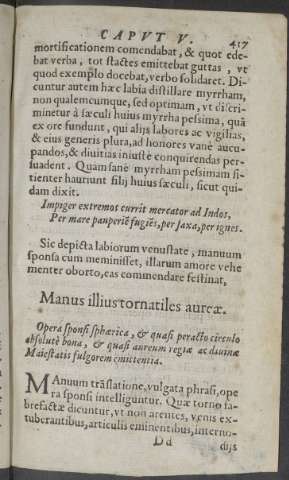 CAPVT V. 417
mortificationem comendabat, & quot ede-
bat verba, tot stactes emittebat guttas, vt
quod exemplo docebat, verbo solidaret. Di-
cuntur autem hæc labia distillare myrrham,
non qualemcumque, sed optimam, vt discri-
minetur à sæculi huius myrrha pessima, quã
ex ore fundunt, qui alijs labores ac vigilias,
& eius generis plura, ad honores vanè aucu-
pandos, & diuitias iniustè conquirendas per-
suadent. Quam sanè myrrham pessimam si-
tienter hauriunt filij huius sæculi, sicut qui-
dam dixit.
Impiger extremos currit mercator ad Indos,
Per mare pauperiẽ fugiẽs, per saxa, per ignes.
Sic depicta labiorum venustate, manuum
sponsa cum meminisset, illarum amore vehe
menter oborto, eas commendare festinat,
Manus illius tornatiles aureæ.
Opera sponsi sphærica, & quasi peracto circulo
absolutè bona, & quasi aureum regiæ ac diuinæ
Maiestatis fulgorem emittentia.
MAnuum trãslatione, vulgata phrasi, ope
ra sponsi intelliguntur. Quæ torno fa-
brefactæ dicuntur, vt non arentes, venis ex-
tuberantibus, articulis eminentibus, interno-
Dd dijs